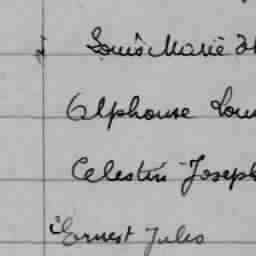 Louis Marie
Alphonse Lou
Celestin Joseph
Ernest Jules